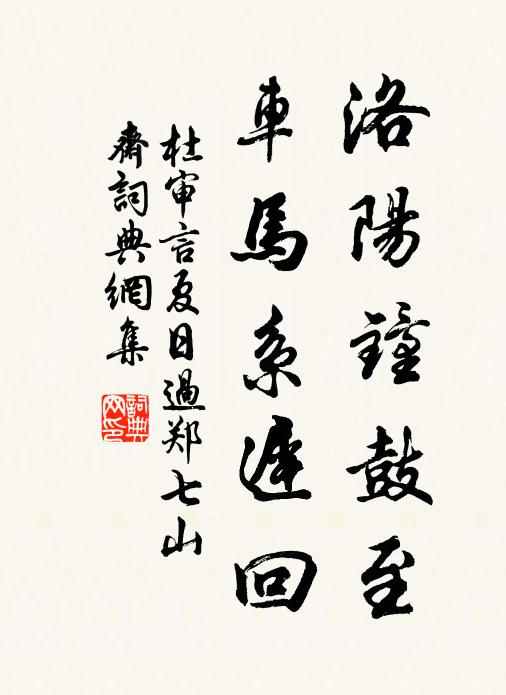 洛陽鐘鼓至
車馬系遲回
杜審言夏日過郑七山
齋詞典網集
詞典
网印